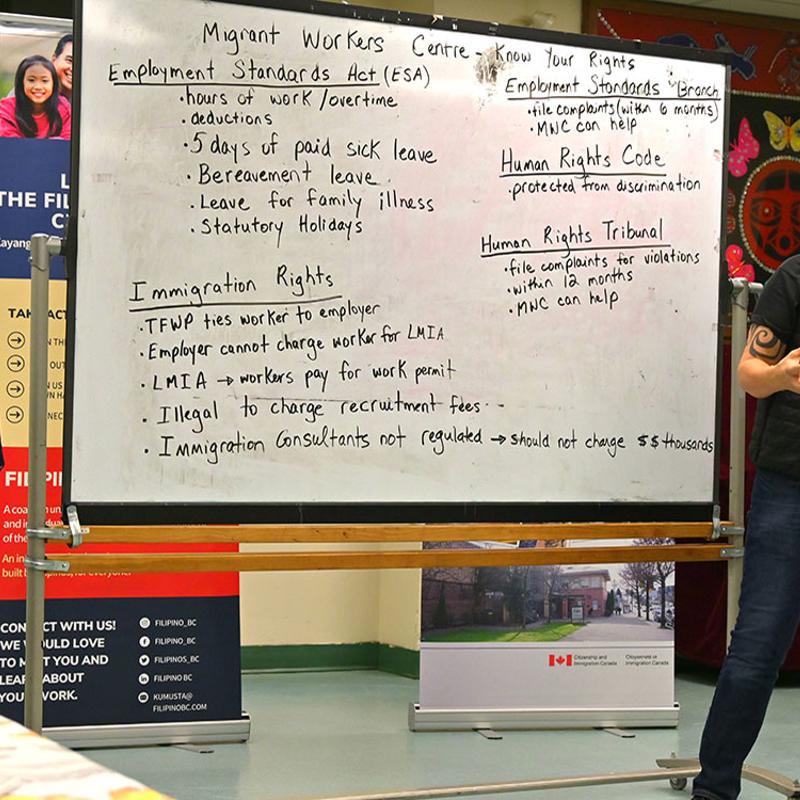 Migrant Workers Centre - Know Your Rights
Employment Standards Act (ESA)
• hours of work / overtime
• deductions
• 5 days of paid sick leave
• Bereavement leave
• Leave for family illness
• Statutory Holidays
Immigration Rights
• TFWP ties worker to employer
• Employer cannot charge worker for LMIA
• LMIA → workers pay for work permit
• Illegal to charge recruitment fees
• Immigration Consultants not regulated → should not charge $$ thousands
Employment Standards Branch
• file complaints (within 6 months)
• MWC can help
Human Rights Code
• protected from discrimination
Human Rights Tribunal
• file complaints for violations
• within 12 months
• MWC can help
THE FIL
CONNECT WITH US!
WE WOULD LOVE
TO MEET YOU AND
LEARN ABOUT
YOUR WORK.
FILIPINO_BC
FILIPINO_BC
FILIPINOS_BC
FILIPINO BC
KUMUSTA@
FILIPINOBC.COM
Citizenship and Immigration Canada
Citoyenneté et Immigration Canada